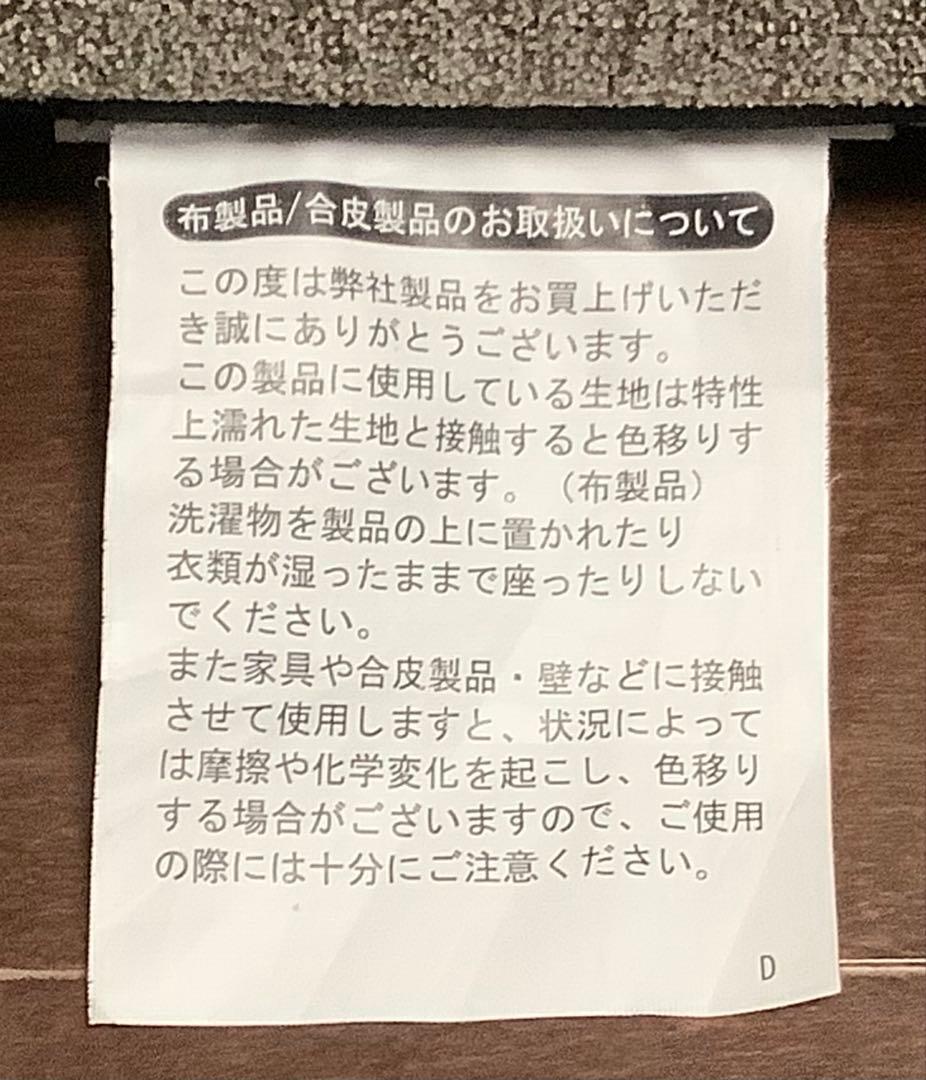 布製品/合皮製品のお取扱いについて
この度は弊社製品をお買上げいただ
き誠にありがとうございます。
この製品に使用している生地は特性
上濡れた生地と接触すると色移りす
る場合がございます。（布製品）
洗濯物を製品の上に置かれたり
衣類が湿ったままで座ったりしない
でください。
また家具や合皮製品・壁などに接触
させて使用しますと、状況によって
は摩擦や化学変化を起こし、色移り
する場合がございますので、ご使用
の際には十分にご注意ください。
D